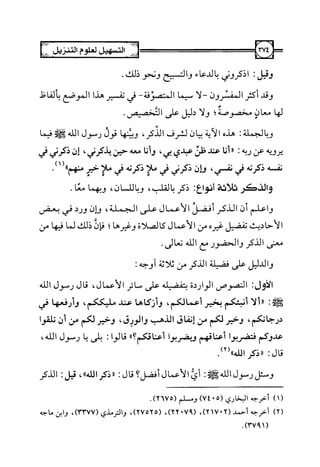 ٣٧٤
التسهيل لعلوم التنزيل
وقيل: اذكروني بالدعاء والتسبيح ونحو ذلك.
وقد أكثر المفسِّرون -لا سيما المتصوِّفة- في تفسير هذا الموضع بألفاظ
لها معانٍ مخصوصةٌ، ولا دليل على التَّخصيص.
وبالجملة: هذه الآية بيان لشرف الذِّكر، وبيَّنها قولُ رسول الله ﷺ فيما
يرويه عن ربه: «أنا عند ظنِّ عبدي بي، وأنا معه حين يذكرني، إن ذكرني في
نفسه ذكرته في نفسي، وإن ذكرني في ملإٍ ذكرته في ملإٍ خيرٍ منهم»(١).
والذكر ثلاثة أنواع: ذكر بالقلب، وباللسان، وبهما معًا.
واعلم أن الذكر أفضلُ الأعمال على الجملة، وإن ورد في بعض
الأحاديث تفضيل غيره من الأعمال كالصلاة وغيرها؛ فإنَّ ذلك لما فيها من
معنى الذكر والحضور مع الله تعالى.
والدليل على فضيلة الذكر من ثلاثة أوجه:
الأول: النصوص الواردة بتفضيله على سائر الأعمال، قال رسول الله
ﷺ: «ألا أنبئكم بخير أعمالكم، وأزكاها عند مليككم، وأرفعها في
درجاتكم، وخير لكم من إنفاق الذهب والورِق، وخير لكم من أن تلقوا
عدوكم فتضربوا أعناقهم ويضربوا أعناقكم؟» قالوا: بلى يا رسول الله،
قال: «ذكر الله»(٢).
وسئل رسول الله ﷺ: أيُّ الأعمال أفضل؟ قال: «ذكر الله»، قيل: الذكر
(١) أخرجه البخاري (٧٤٠٥) ومسلم (٢٦٧٥).
(٢) أخرجه أحمد (٢١٧٠٢)، (٢٢٠٧٩)، (٢٧٥٢٥)، والترمذي (٣٣٧٧)، وابن ماجه
(٣٧٩١).